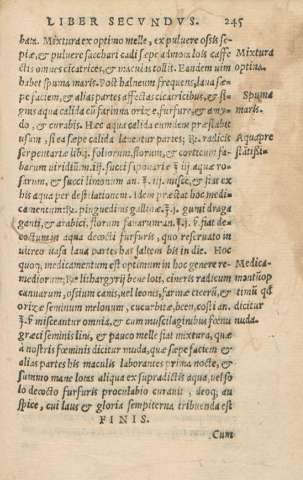 LIBER SECVNDVS. 245
bam. Mixtura ex optimo melle, ex puluere ossis se-
piæ, & puluere sacchari cadi sæpe admota lotis calfe Mixtura
ctis omnes cicatrices, & maculas tollit. Eandem uim optima.
habet spuma maris. Post balneum frequens, laua sæ-
pe faciem, & alias partes affectas cicatricibus, & si- Spuma
gnis aqua calida cũ farina orizæ, furfure, & amy- maris.
do, & curabis. Hæc aqua calida eundem præstabit
usum, si ea sæpe calida lauentur partes; ℞. radicis Aqua præ
serpentariæ lib. florum, florum, & corticum fa- stãtiss.
barum uiridium. succi saponariæ aqua ro-
sarum, & succi limonum an. misce, & fiat ex
his aqua per destillationem. Idem præstat hoc medi-
camentum: ℞. pinguedinis gallinæ. gumi draga
ganti, & arabici, florum fauarum an. fiat de-
coctum in aqua decocti furfuris, quo reseruato in
uitreo uase laua partes has saltem bis in die. Hoc
quoq; medicamentum est optimum in hoc genere re- Medica-
mediorum; ℞. lithargyrij bene loti, cineris radicum mentũ op
cannarum, ossium canis, uel leonis, farinæ cicerũ, & timũ
orizæ seminum melonum, cucurbitæ, been, costi an. dicitur
misceantur omnia, & cum muscilaginibus fœnu nuda.
græci seminis lini, & pauco melle fiat mixtura, quæ
a nostris fœminis dicitur nuda, qua sæpe faciem &
alias partes his maculis laborantes prima nocte, &
summo mane lotas aliqua ex supradictis aqua, uel so
lo decocto furfuris proculabio curauit, deoq; au
spice, cui laus & gloria sempiterna tribuenda est
FINIS.
Cum